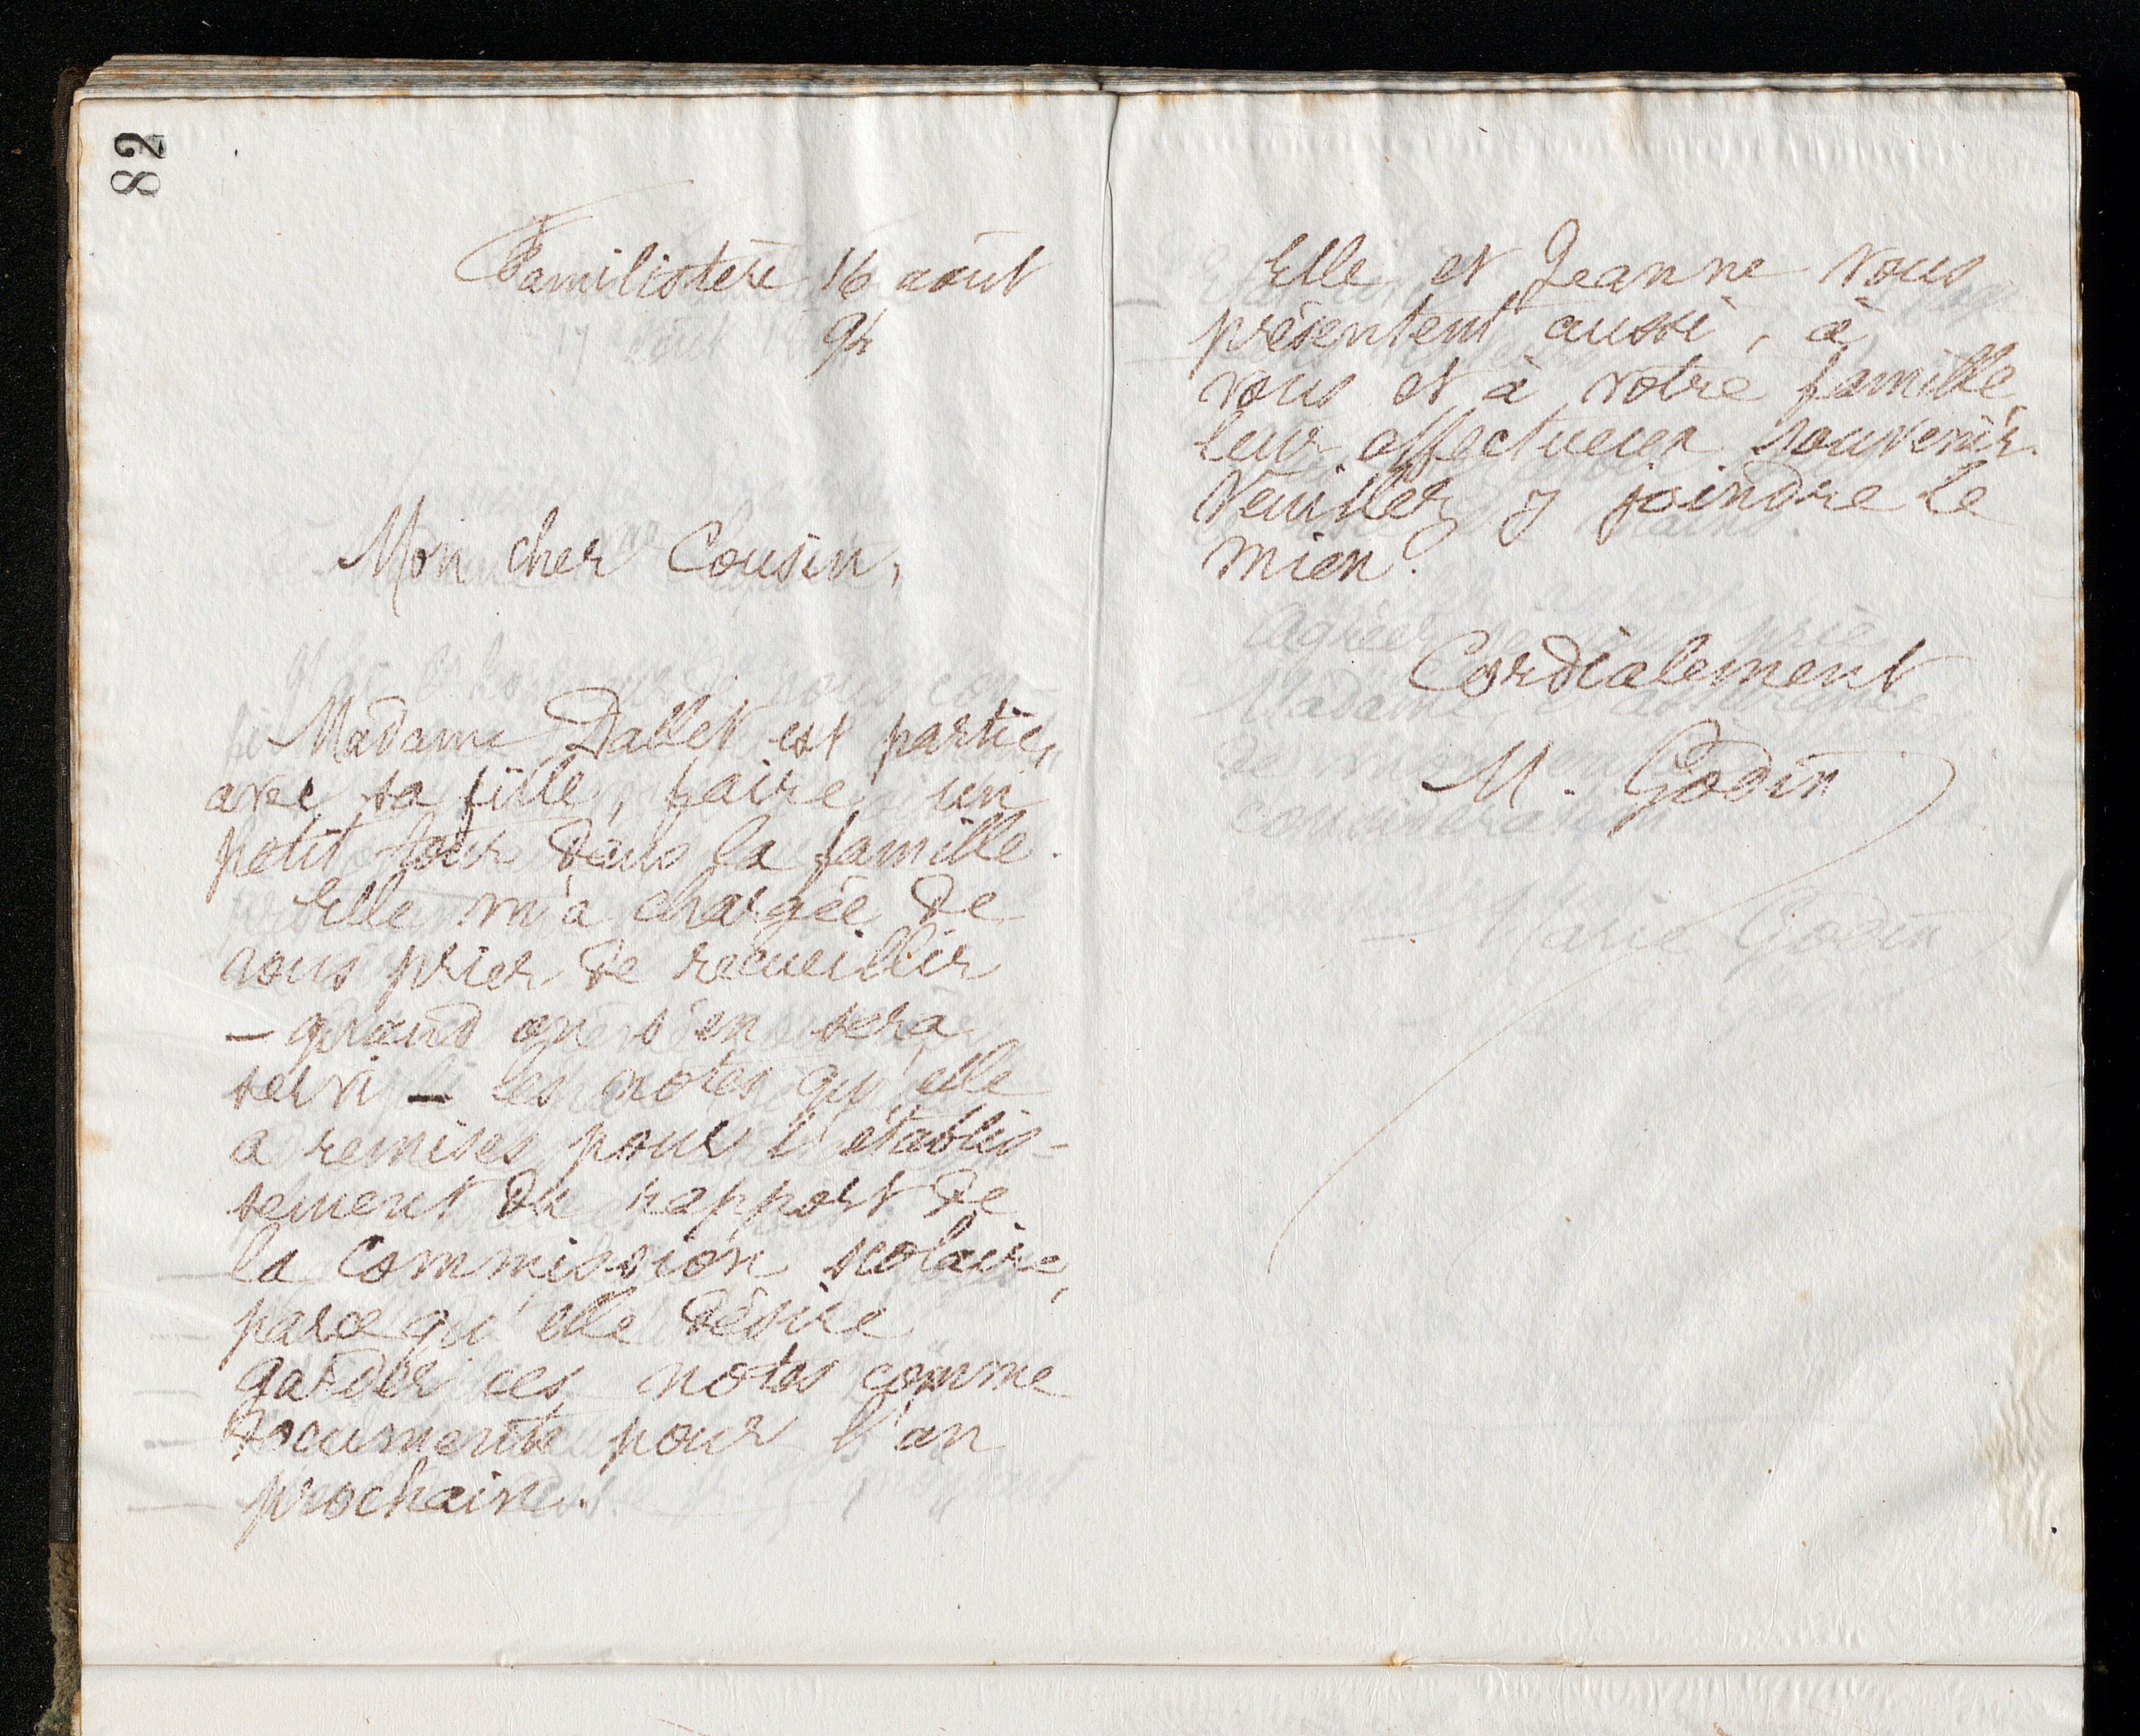 82
Familistère 16 août
94
Mon cher Cousin,
Madame Dallet est partie,
avec sa fille, faire un
petit tour dans la famille.
Elle m'a chargée de
vous prier de recueillir
— quand on s'en sera
servi — les notes qu'elle
a remises pour l'établis-
sement du rapport de
la Commission scolaire,
parce qu'elle désire
garder ces notes comme
documents pour l'an
prochain.
Elle et Jeanne vous
présentent aussi, à
vous et à votre famille,
leur affectueux souvenir.
Veuillez y joindre le
mien.
Cordialement
M. Godin